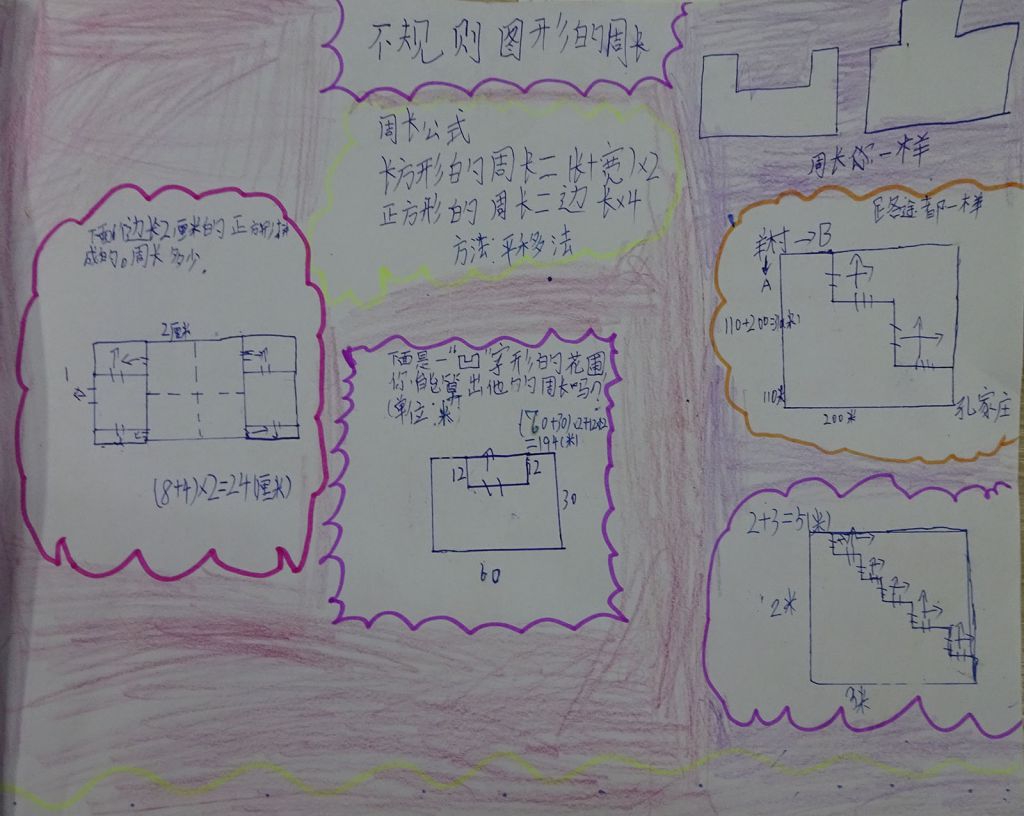 不规则图形的周长
周长公式
长方形的周长=(长+宽)×2
正方形的周长=边长×4
方法:平移法
周长你一样
下面 边长2厘米的正方形拼
成的。周长多少.
2厘米
(8+4)×2=24(厘米)
下面是一"凹"字形的花圃
你能算出他的周长吗?
(单位:米)
(60+30)×2+12×2
=194(米)
12
12
30
60
路途都一样
羊村→B
A
110+200=310(米)
110米
200米
孔家庄
2+3=5(米)
2米
3米